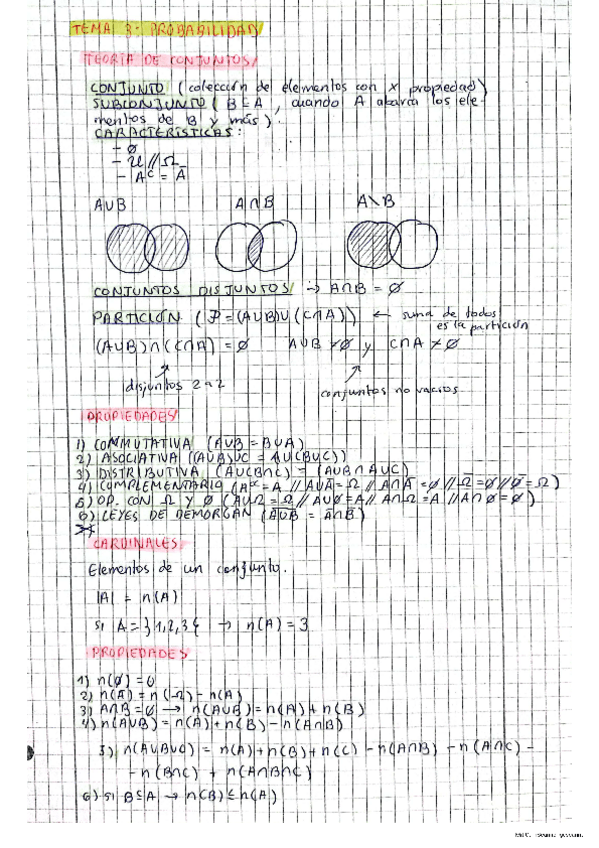 TEMA 3: PROBABILIDAD
TEORÍA DE CONJUNTOS
CONJUNTO (colección de elementos con x propiedad)
SUBCONJUNTO ( B ⊆ A , cuando A abarca los ele-
mentos de B y más).
CARACTERÍSTICAS:
- Ø
- U // Ω
- Aᶜ = Ā
A∪B A∩B A\B
CONJUNTOS DISJUNTOS → A∩B = Ø
PARTICIÓN ( P = (A∪B)∪(C∩A)) ← suma de todos
es la partición
(A∪B)∩(C∩A) = Ø A∪B ≠ Ø y C∩A ≠ Ø
disjuntos 2 a 2
conjuntos no vacíos
PROPIEDADES
1) CONMUTATIVA (A∪B = B∪A)
2) ASOCIATIVA ((A∪B)∪C = A∪(B∪C))
3) DISTRIBUTIVA (A∪(B∩C) = (A∪B∩A∪C)
4) COMPLEMENTARIO (Aᶜᶜ = A // A∪Ā = Ω // A∩Ā = Ø // Ω̄ = Ø // Ø̄ = Ω)
5) OP. CON Ω Y Ø (A∪Ω = Ω // A∪Ø = A // A∩Ω = A // A∩Ø = Ø)
6) LEYES DE DEMORGAN (A̅∪̅B̅ = Ā∩B̄)
CARDINALES
Elementos de un conjunto.
|A| = n(A)
si A = }1,2,3{ → n(A) = 3
PROPIEDADES
1) n(Ø) = 0
2) n(Ā) = n(Ω) - n(A)
3) A∩B = Ø → n(A∪B) = n(A) + n(B)
4) n(A∪B) = n(A) + n(B) - n(A∩B)
5) n(A∪B∪C) = n(A) + n(B) + n(C) - n(A∩B) - n(A∩C) -
- n(B∩C) + n(A∩B∩C)
6) si B⊆A → n(B) ≤ n(A)